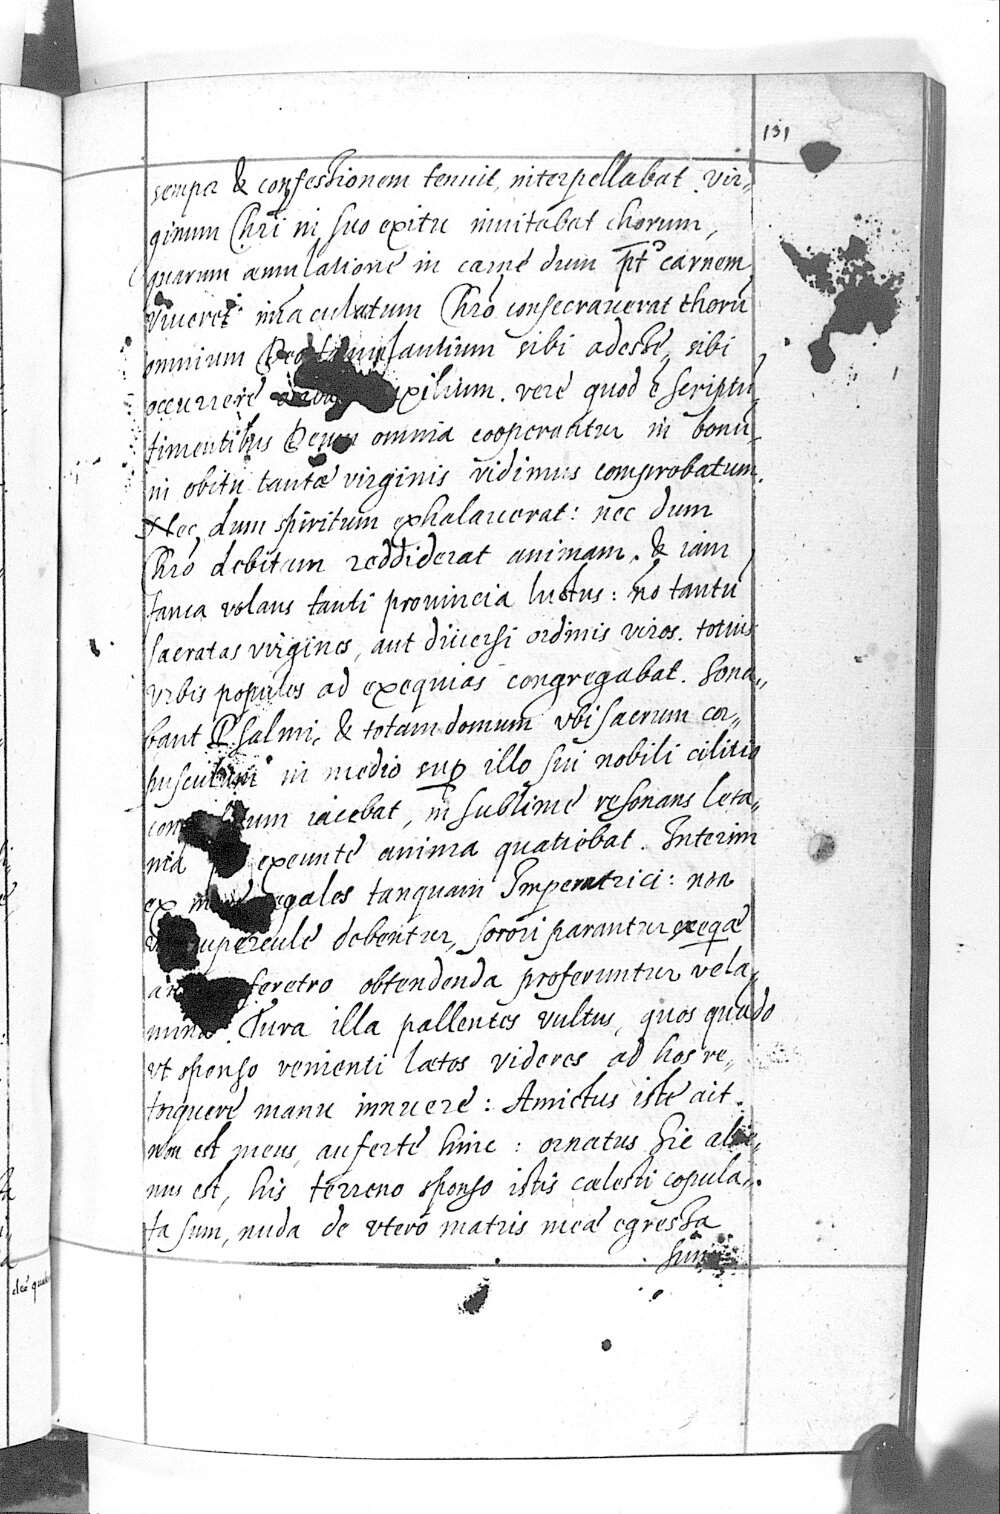 131
semper & confessionem tenuit, interpellabat vir„
ginum Chri in suo exitu inuitabat chorum,
quarum æmulatione in carne dum pt' carnem
viueret immaculatum Chro consecrauerat thorū
omnium sibi adesse, sibi
occurrere auxilium. vere quod ē scriptū
timentibus Deum omnia cooperantur in bonū
in obitu tantæ virginis vidimus comprobatum.
Nec dum spiritum exhalauerat: nec dum
Chro debitum reddiderat animam. & iam
fama volans tanti prouincia luctus: nō tantū
sacratas virgines, aut diuersi ordinis viros. totius
vrbis populos ad exequias congregabat. Sona„
bant Psalmi, & totam domum vbi sacrum cor„
pusculum in medio sup illo sui nobili cilitio
iacebat, in sublime resonans leta„
nia exeunte anima quatiebat. Interim
ex more regales tanquam Imperatrici: non
debentur, sorori parantur exeqæ
feretro obtendenda proferuntur vela„
mina. Tura illa pallentes vultus, quos quādo
vt sponso venienti lætos videres ad hos re„
torquere manu innuere: Amictus iste ait
non est meus, auferte hinc: ornatus hic alie„
nus est, his terreno sponso istis cælesti copula„
ta sum, nuda de vtero matris meæ egressa
sum